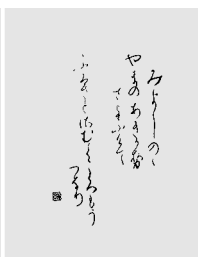 みよしのゝ
やまのあき可勢
さよふけて
ふるさとさむくころもう
つなり